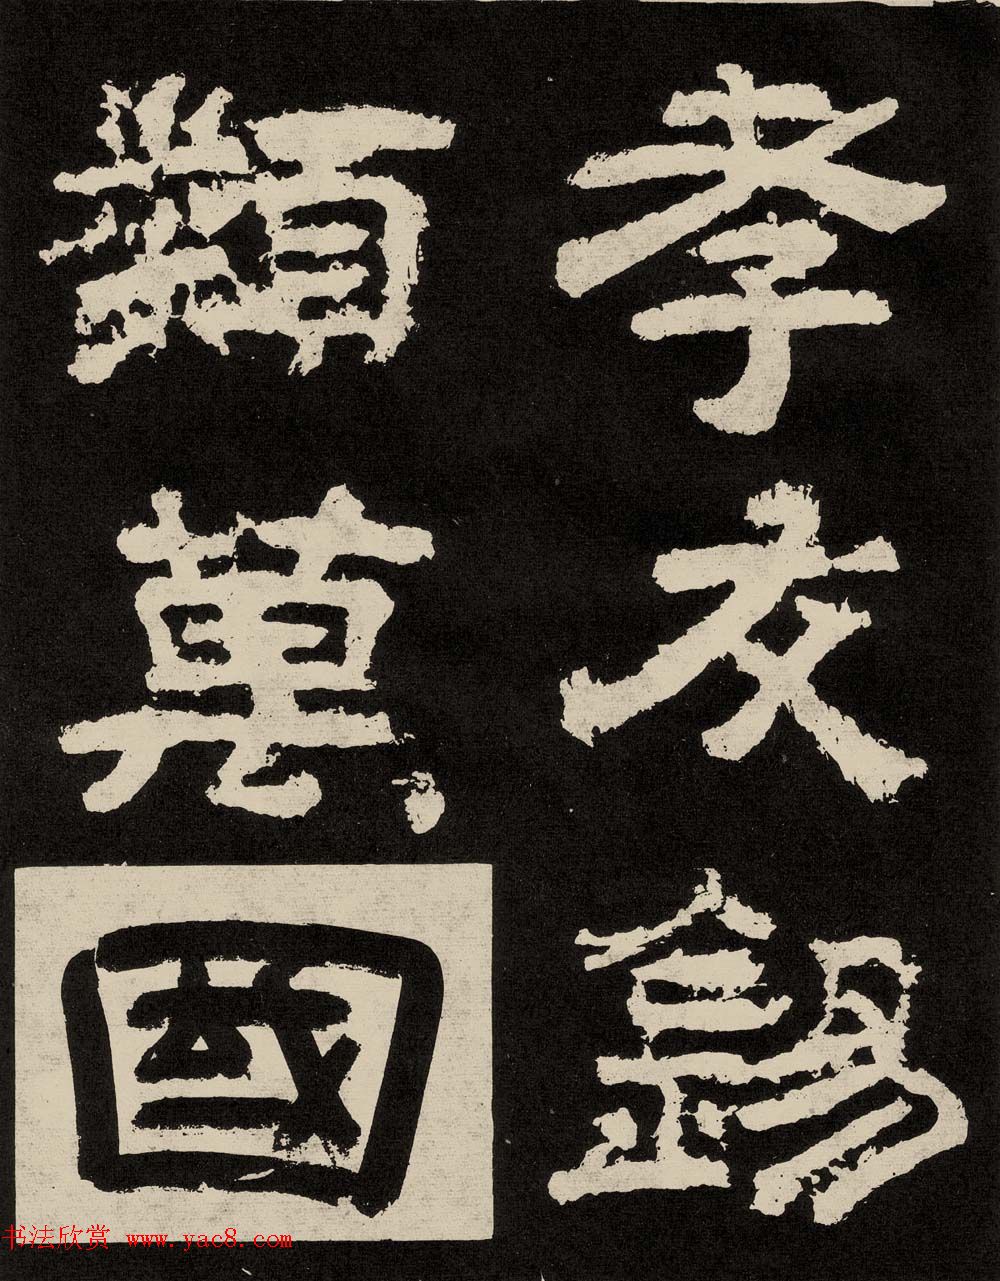 孝友錫
類萬國
书法欣赏 www.yac8.com